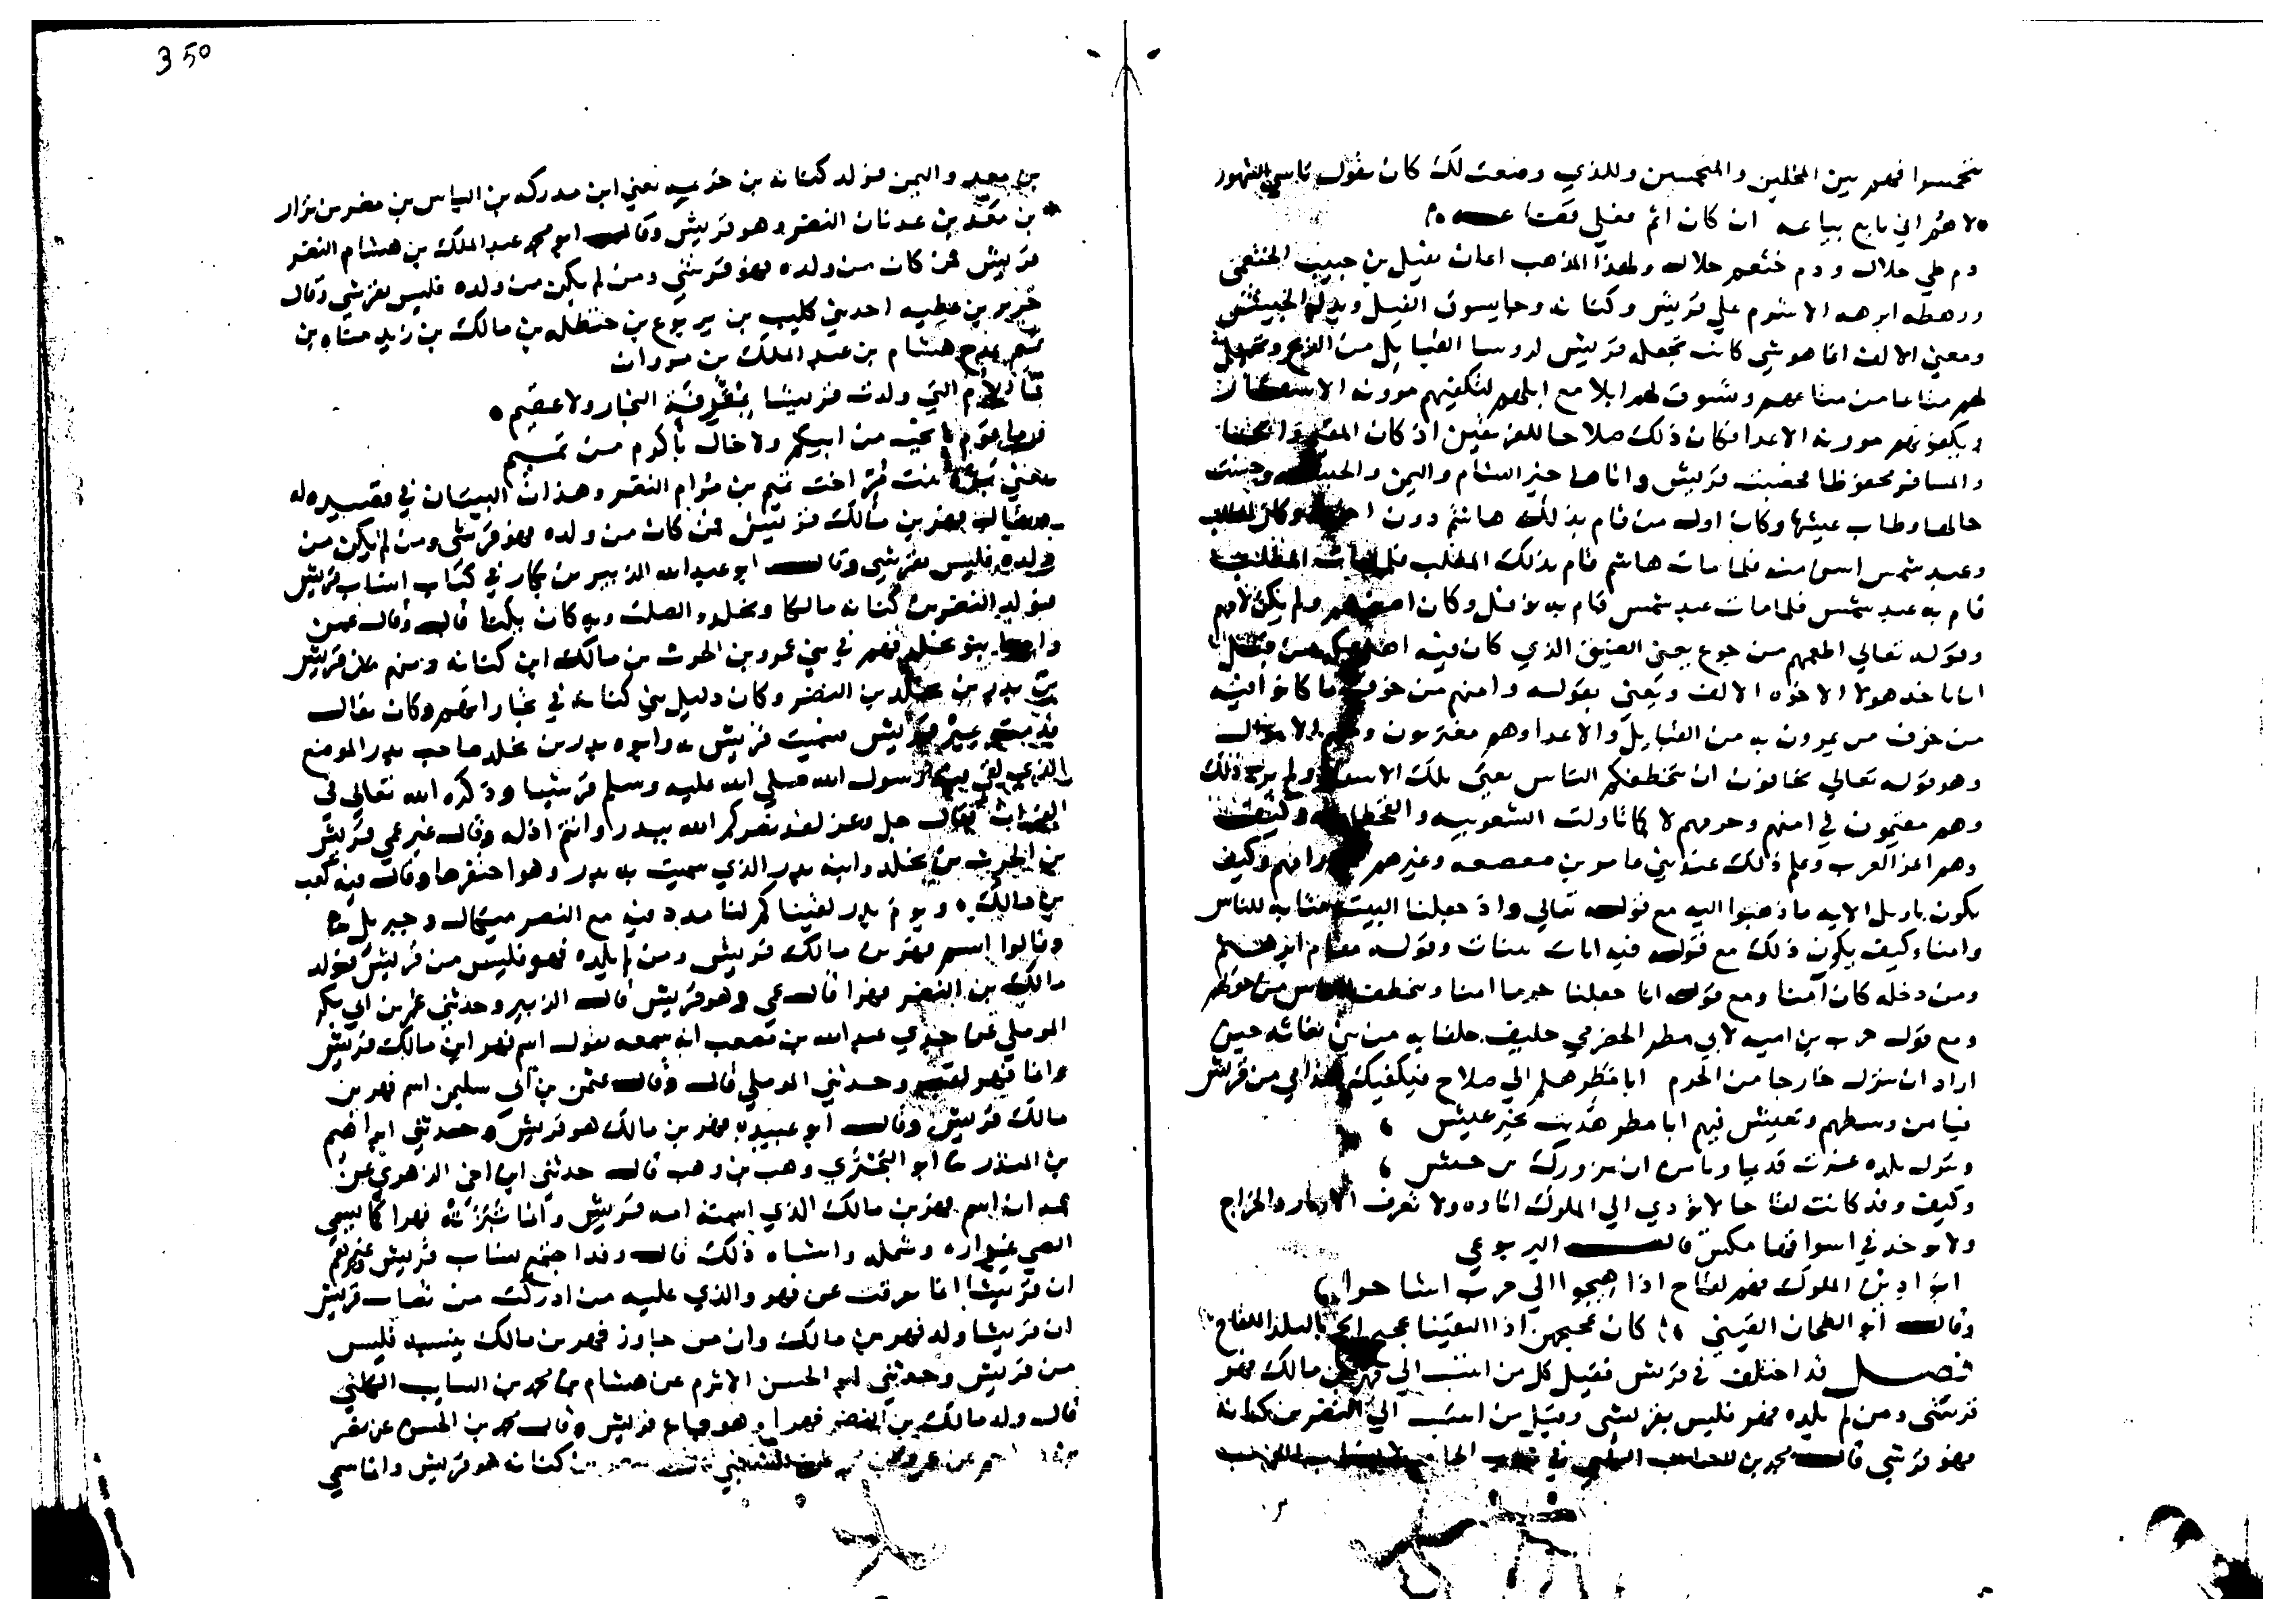 350
تحمسوا فهم بين المحلين والمتحمسين وللذي وصفت لك كان يقول ناسي الشهور
لاهم اني بايع بياعه ان كان اثم فعلي قضاعه
دم طي حلال ودم خثعم حلال ولهذا المذهب اعان نفيل بن حبيب الخثعمي
ورهطه ابرهه الاشرم علي قريش وكنانه وجا يسوق الفيل
ومعني الالف انما هو شي كانت تجعله قريش لروسا القبايل من
لهم متاعا من متاعهم وتسوق لهم ابلا مع ابلهم لتكفيهم موونه الاسفار
ويكفونهم موونه الاعدا فكان ذلك صلاحا للفريقين اذ كان المقيم
والمسافر محفوظا فخصبت قريش واتاها خير الشام واليمن وحسنت
حالها وطاب عيشها وكان اول من قام بذلك هاشم دون
وعبد شمس اسن منه فلما مات هاشم قام بذلك المطلب فلما مات المطلب
قام به عبد شمس فلما مات عبد شمس قام به نوفل وكان اصغرهم ولم يكن لامهم
وقوله تعالي اطعمهم من جوع يعني الضيق الذي كان فيه
اياما خد هولا الاخوه الالف ويعني بقوله وامنهم من خوف ما كانوا فيه
من خوف من يمرون به من القبايل والاعدا وهم مغتربون
وهو قوله تعالي تخافون ان يتخطفكم الناس يعني تلك الاسفار ولم يرد ذلك
وهم مقيمون في امنهم وحرمهم لا كما تاولت الشعوبيه وكيف
وهم اعز العرب وعلم ذلك عند بني عامر بن صعصعه وغيرهم وكيف
يكون تاويل الايه ما ذهبوا اليه مع قوله تعالي واذ جعلنا البيت مثابه للناس
وامنا وكيف يكون ذلك مع قوله فيه ايات بينات وقوله مقام ابرهيم
ومن دخله كان آمنا ومع قوله انا جعلنا حرما امنا ويتخطف الناس من حولهم
ومع قول حرب بن اميه لابي مطر الحضرمي حليف من بني نفاثه حين
اراد ان ينزل خارجا من الحرم ابا مطر هلم الي صلاح فيكفيك من قريش
فيا من وسطهم وتعيش فيهم ابا مطر هديت بخير عيش
وينزل بلده عزت قديما وتامن ان يزورك رب جيش
وكيف وقد كانت لقاحا لا تؤدي الي الملوك اتاوه ولا تعرف والخراج
ولا يوخد في اسواقها مكس قال اليربوعي
ابوا دين الملوك فهم لقاح اذا هيجوا الي حرب اشاحوا
وقال ابو الطمحان القيني كان اذا التقينا بالبلد اللقاح
فصل قد اختلف في قريش فقيل كل من انتسب الي فهر بن مالك فهو
قرشي ومن لم يلده فهو فليس بقرشي وقيل من انتسب الي النضر بن كنانه
فهو قرشي قال محمد بن
بن معد واليمن فولد كنانه بن خزيمه يعني ابن مدركه بن الياس بن مضر بن نزار
بن معد بن عدنان النضر وهو قريش وقال ابو محمد عبد الملك بن هشام النضر
قريش فمن كان من ولده فهو قرشي ومن لم يكن من ولده فليس بقرشي وقال
جرير بن عطيه احد بني كليب بن يربوع بن حنظله بن مالك بن زيد مناه بن
تميم يمدح هشام بن عبد الملك بن مروان
فما الام التي ولدت قريشا بمقرفة النجار ولا عقيم
فما قوم بانجب من ابيكم ولا خال باكرم من تميم
يعني بره بنت مر اخت تميم بن مر ام النضر وهذان البيتان في قصيده له
ويقال فهر بن مالك قريش فمن كان من ولده فهو قرشي ومن لم يكن من
ولده فليس بقرشي وقال ابو عبد الله الزبير بن بكار في كتاب انساب قريش
فولد النضر بن كنانه مالكا ويخلد والصلت وبه كان يكنا قال وقال
واما بنو يخلد فهم في بني عمرو بن الحرث بن مالك ابن كنانه ومنهم كان قريش
بن بدر بن يخلد بن النضر وكان دليل بني كنانه في تجاراتهم وكان يقال
قدمت عير قريش سميت قريش به وابوه بدر بن يخلد صاحب بدر الموضع
الذي لقي به رسول الله صلي الله عليه وسلم قريشا وذكره الله تعالي في
القران فقال جل وعز لقد نصركم الله ببدر وانتم اذله وقال غير عمي قريش
بن الحرث بن يخلد وابنه بدر الذي سميت به بدر وهو احتفرها وقال فيه كعب
بن مالك ويوم بدر لقيناكم لنا مدد فيه مع النصر ميكال وجبريل
وقالوا اسم فهر بن مالك قريش ومن لم يلده فهو فليس من قريش فولد
مالك بن النضر فهرا قال عمي وهو قريش قال الزبير وحدثني عمر بن ابي بكر
الموملي عن جدي عبد الله بن مصعب انه سمعه يقول اسم فهر ابن مالك قريش
وانما فهر لقب وحدثني الموملي قال وقال عثمن بن ابي سليمن اسم فهر بن
مالك قريش وقال ابو عبيده فهر بن مالك هو قريش وحدثني ابراهيم
بن المنذر ابو البختري وهب بن وهب قال حدثني ابن اخي الزهري عن
عمه ان اسم فهر بن مالك الذي اسمته امه قريش وانما نبزته فهرا كما يسمي
الصبي غراره وشمله واشباه ذلك قال وقد اجتمع نساب قريش وغيرهم
ان قريشا انما تفرقت عن فهر والذي عليه من ادركت من نساب قريش
ان قريشا ولد فهر بن مالك وان من جاوز فهر بن مالك بنسبه فليس
من قريش وحدثني ابو الحسن الاثرم عن هشام بن محمد بن السايب الكلبي
قال ولد مالك بن النضر فهرا وهو جماع قريش وقال محمد بن الحسن عن نصر
كنانه هو قريش وانما سمي